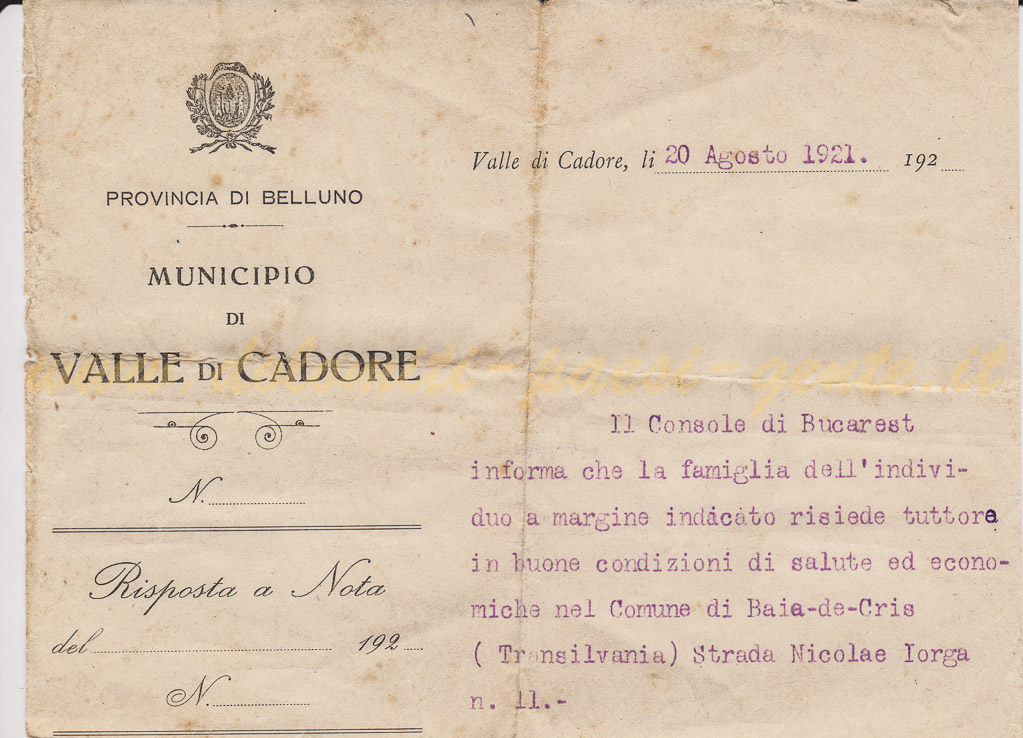 PROVINCIA DI BELLUNO
MUNICIPIO
DI
VALLE DI CADORE
N.
Risposta a Nota
del 192
N.
Valle di Cadore, li 20 Agosto 1921. 192
Il Console di Bucarest
informa che la famiglia dell'indivi-
duo a margine indicato risiede tuttora
in buone condizioni di salute ed econo-
miche nel Comune di Baia-de-Cris
( Transilvania) Strada Nicolae Iorga
n. 11.-
paesi-gente.it